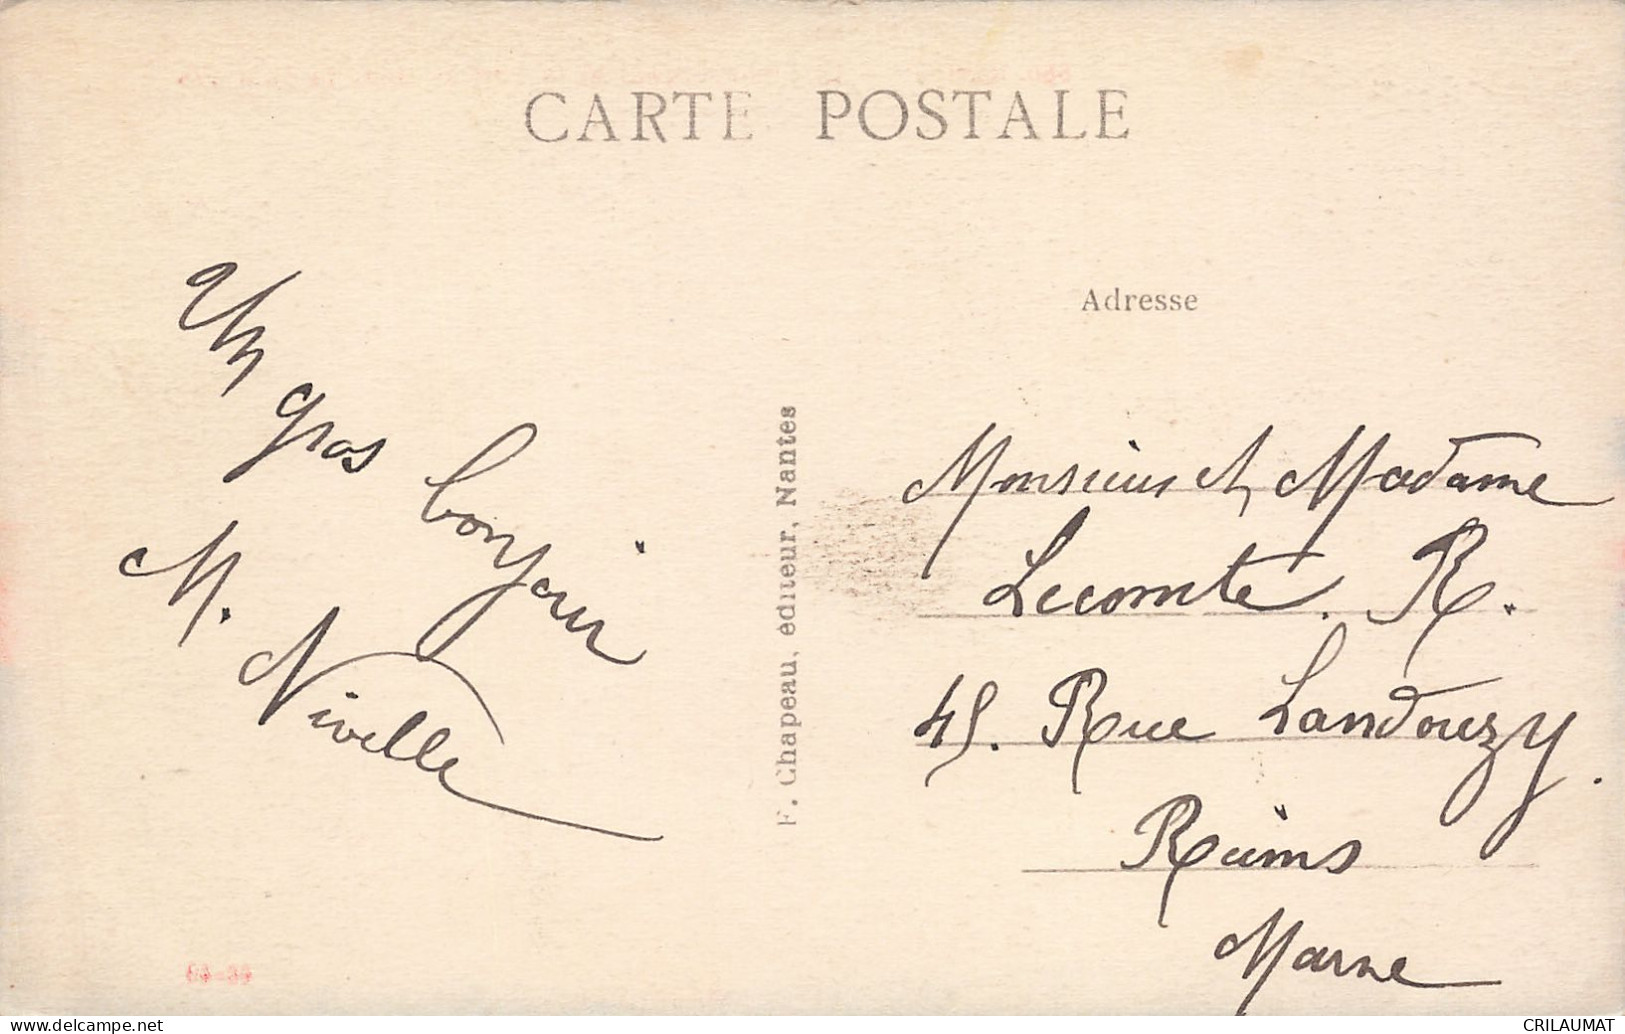 CARTE POSTALE
Un
gros
bonjour
M. Nivelle
F. Chapeau, éditeur, Nantes
Adresse
Monsieur et Madame
Lecomte. R.
45. Rue Landouzy.
Reims
Marne
delcampe.net
CRILAUMAT